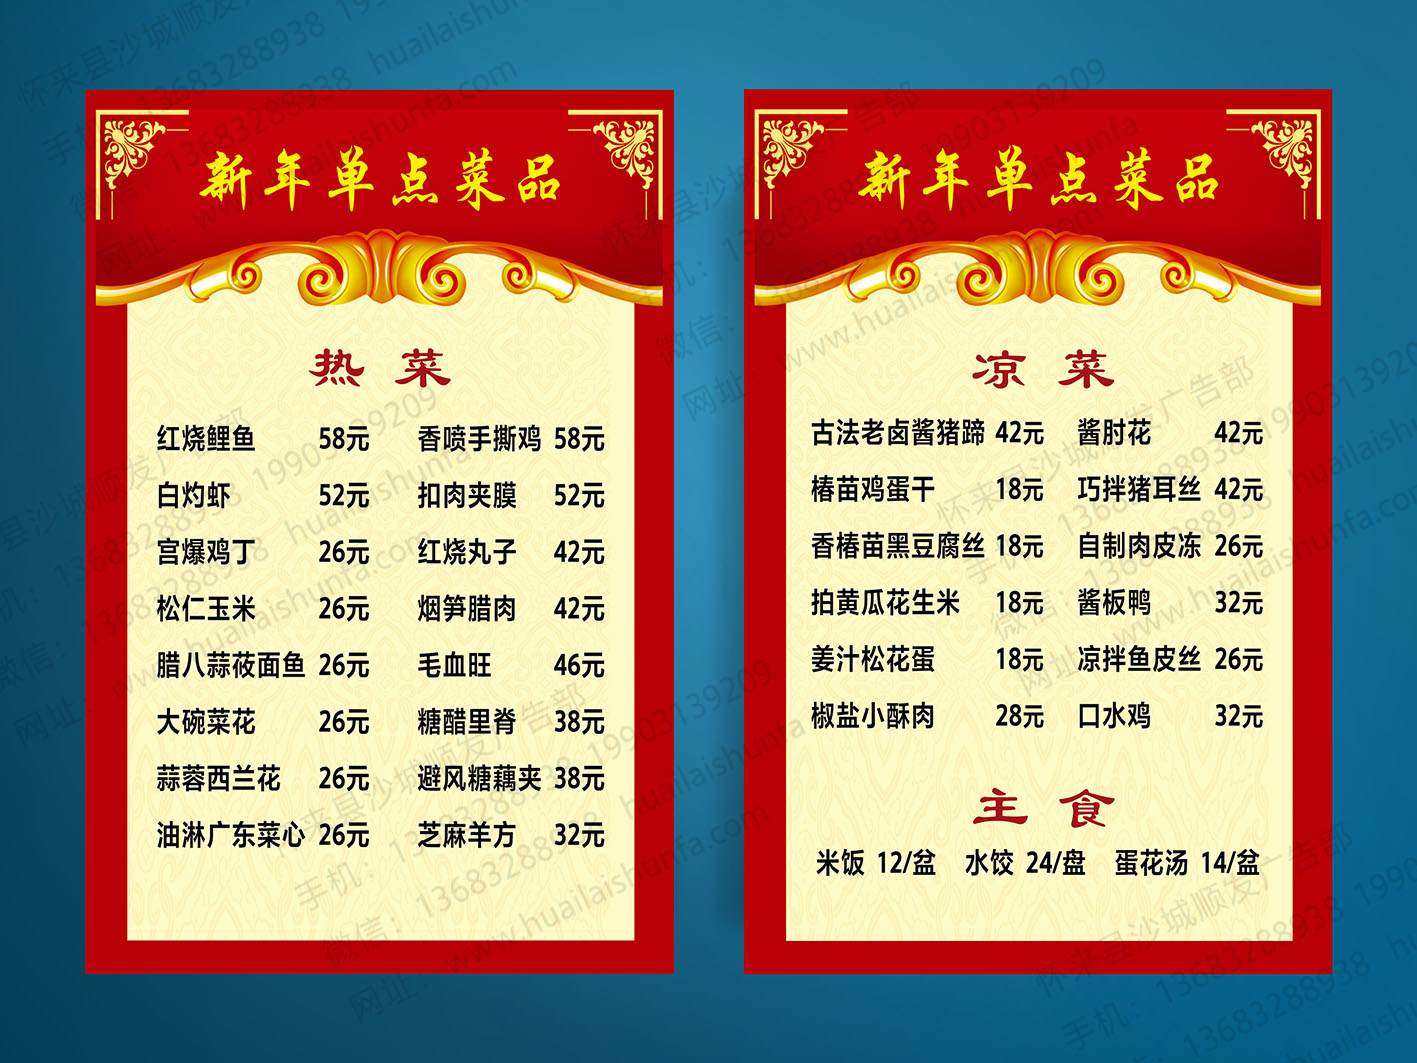 新年单点菜品
热菜
红烧鲤鱼 58元 香喷手撕鸡 58元
白灼虾 52元 扣肉夹膜 52元
宫爆鸡丁 26元 红烧丸子 42元
松仁玉米 26元 烟笋腊肉 42元
腊八蒜莜面鱼 26元 毛血旺 46元
大碗菜花 26元 糖醋里脊 38元
蒜蓉西兰花 26元 避风糖藕夹 38元
油淋广东菜心 26元 芝麻羊方 32元
新年单点菜品
凉菜
古法老卤酱猪蹄 42元 酱肘花 42元
椿苗鸡蛋干 18元 巧拌猪耳丝 42元
香椿苗黑豆腐丝 18元 自制肉皮冻 26元
拍黄瓜花生米 18元 酱板鸭 32元
姜汁松花蛋 18元 凉拌鱼皮丝 26元
椒盐小酥肉 28元 口水鸡 32元
主食
米饭 12/盆 水饺 24/盘 蛋花汤 14/盆
怀来县沙城顺发广告部 19903139209
手机：13683288938
微信：13683288938
网址：www.huailaishunfa.com